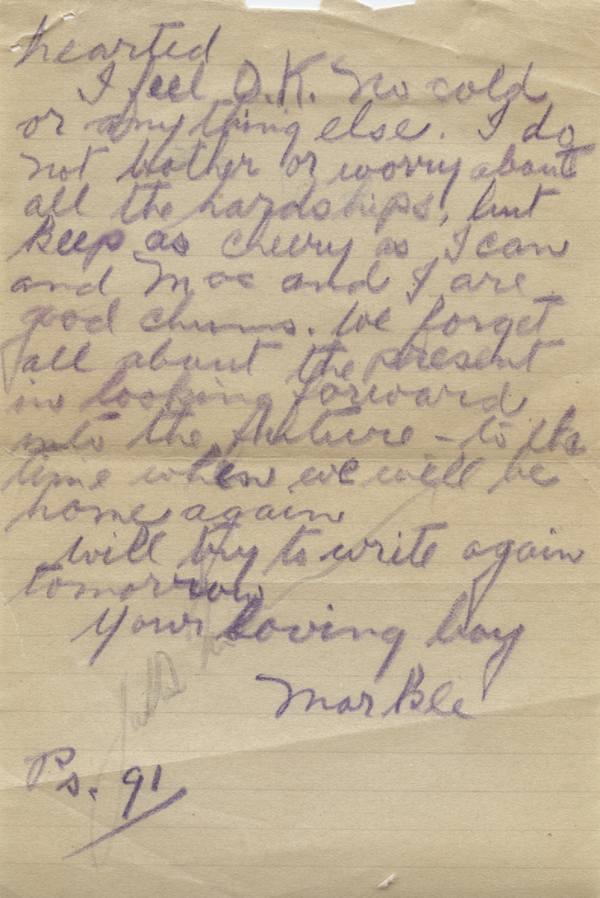 hearted
I feel O.K. No cold
or anything else. I do
not bother or worry about
all the hardships, but
keep as cheery as I can
and Mac and I are
good chums. We forget
all about the present
in looking forward
into the future - to the
time when we will be
home again
will try to write again
tomorrow
Your loving boy
Markle
Ps. 91